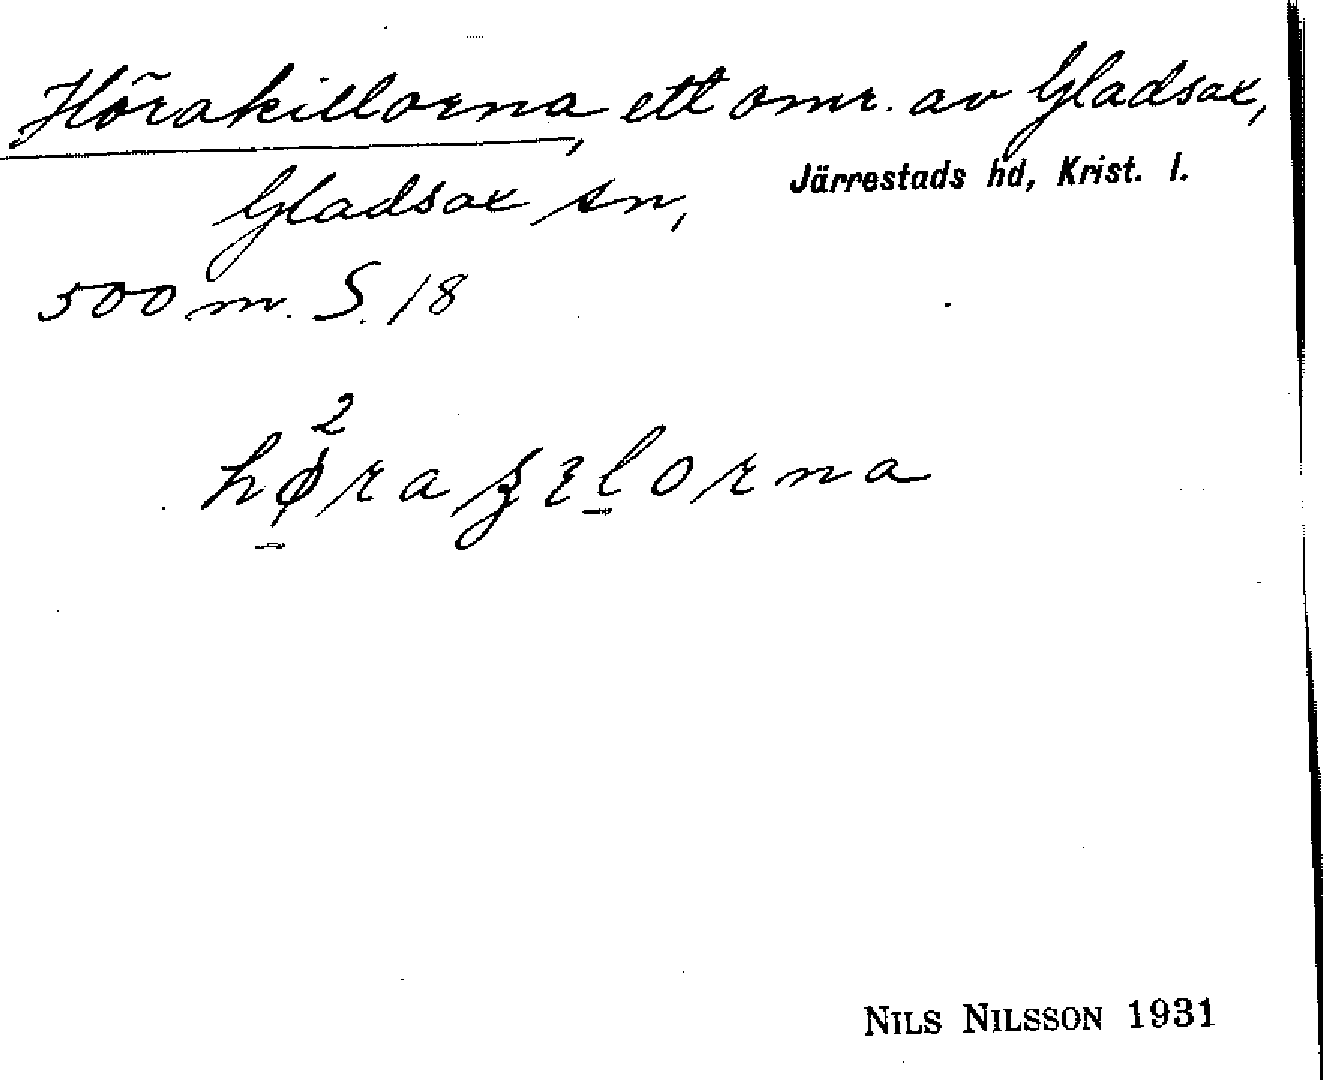 Hörakillorna, ett omr. av Gladsax,
Gladsax sn, Järrestads hd, Krist. l.
500 m. S. 18
2
NILS NILSSON 1931